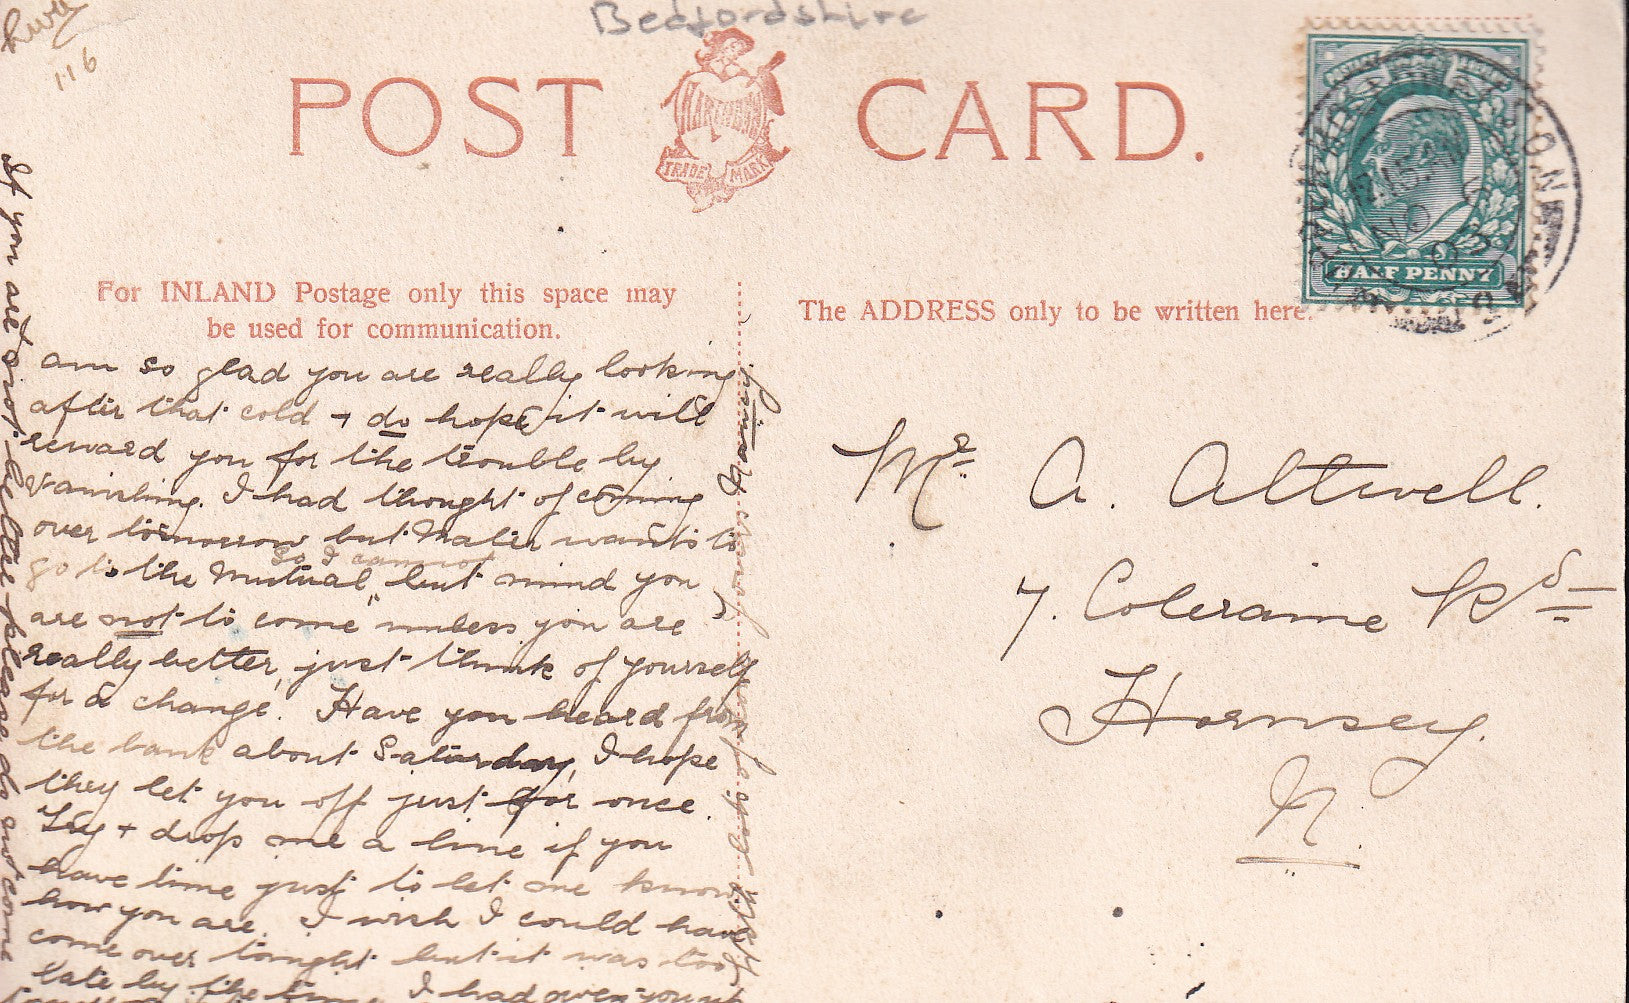 Bedfordshire
116
POST CARD.
HARTMANN
TRADE MARK
For INLAND Postage only this space may
be used for communication.
The ADDRESS only to be written here.
HALF PENNY
am so glad you are really looking
after that cold + do hope it will
reward you for the trouble by
vanishing. I had thought of coming
over tomorrow but Mater wants to
so I cannot
go to the Mutual, but mind you
are not to come unless you are
really better, just think of yourself
for a change. Have you heard from
the bank about Saturday, I hope
they let you off just for once.
Try + drop me a line if you
have time just to let me know
how you are. I wish I could have
come over tonight but it was too
late by the time I had given you up
If you are not better please do not come
Mr. A. Attwell.
7. Coleraine Rd
Hornsey.
N.